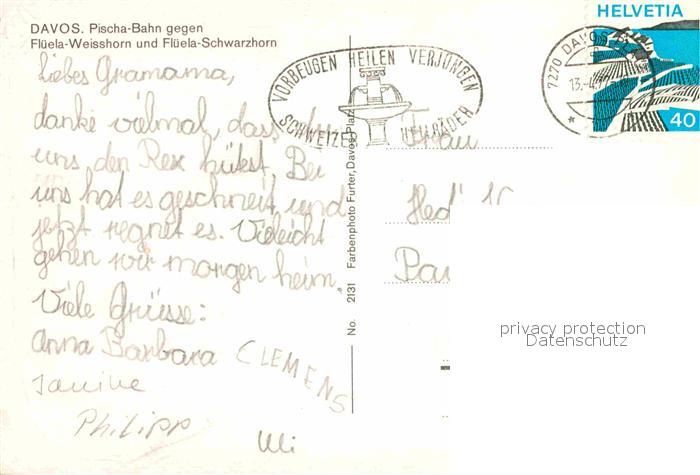 DAVOS. Pischa-Bahn gegen
Flüela-Weisshorn und Flüela-Schwarzhorn
Liebes Gramama,
danke vielmal, dass du
uns den Rex hütest. Bei
uns hat es geschneit und
jetzt regnet es. Vieleicht
gehen wir morgen heim.
Viele Grüsse:
Anna Barbara CLEMENS
Janine
Philipp
Uli
No. 2131 Farbenphoto Furter, Davos Platz
VORBEUGEN HEILEN VERJÜNGEN
SCHWEIZER HEILBÄDER
7270 DAVOS
13.-4.
HELVETIA
40
Frau
privacy protection
Datenschutz